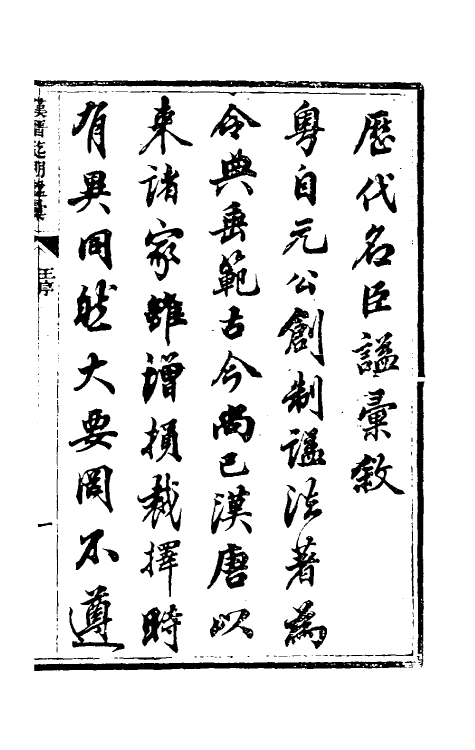 歷代名臣謚彙敘
粵自元公創制謚法著為
令典垂範古今尚已漢唐以
來諸家雖增損裁擇時
有異同然大要罔不遵
漢晉迄明謚彙
王序
一